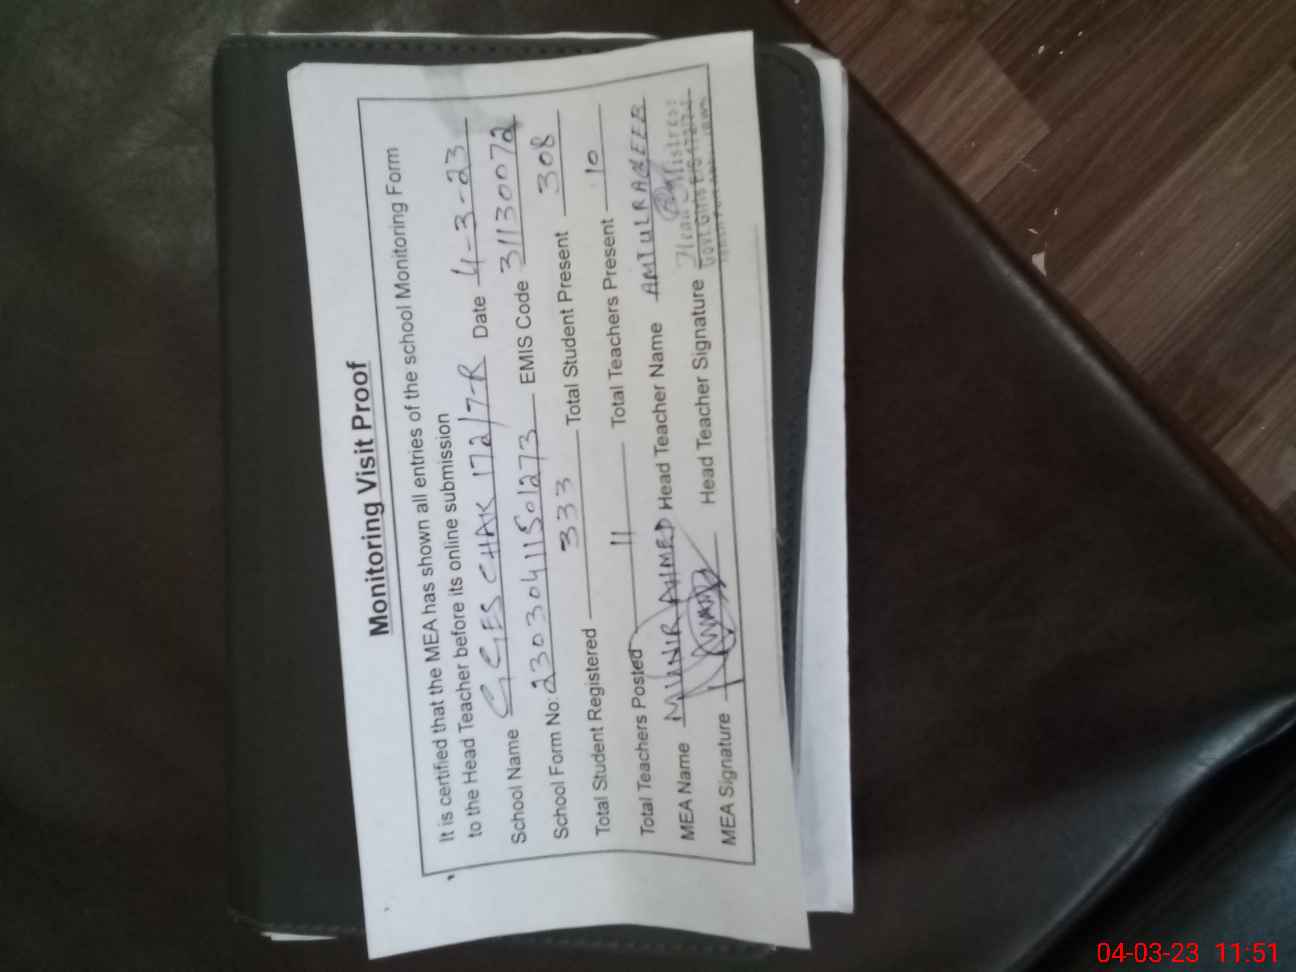 Monitoring Visit Proof
It is certified that the MEA has shown all entries of the school Monitoring Form
to the Head Teacher before its online submission
School Name GGES CHAK 172/7-R Date 4-3-23
School Form No: 23030411501273 EMIS Code 31130072
Total Student Registered 333 Total Student Present 308
Total Teachers Posted 11 Total Teachers Present 10
MEA Name MUNIR AHMED Head Teacher Name AMTULRAQEEB
MEA Signature Head Teacher Signature
Head Mistress
Govt. Girls
04-03-23 11:51